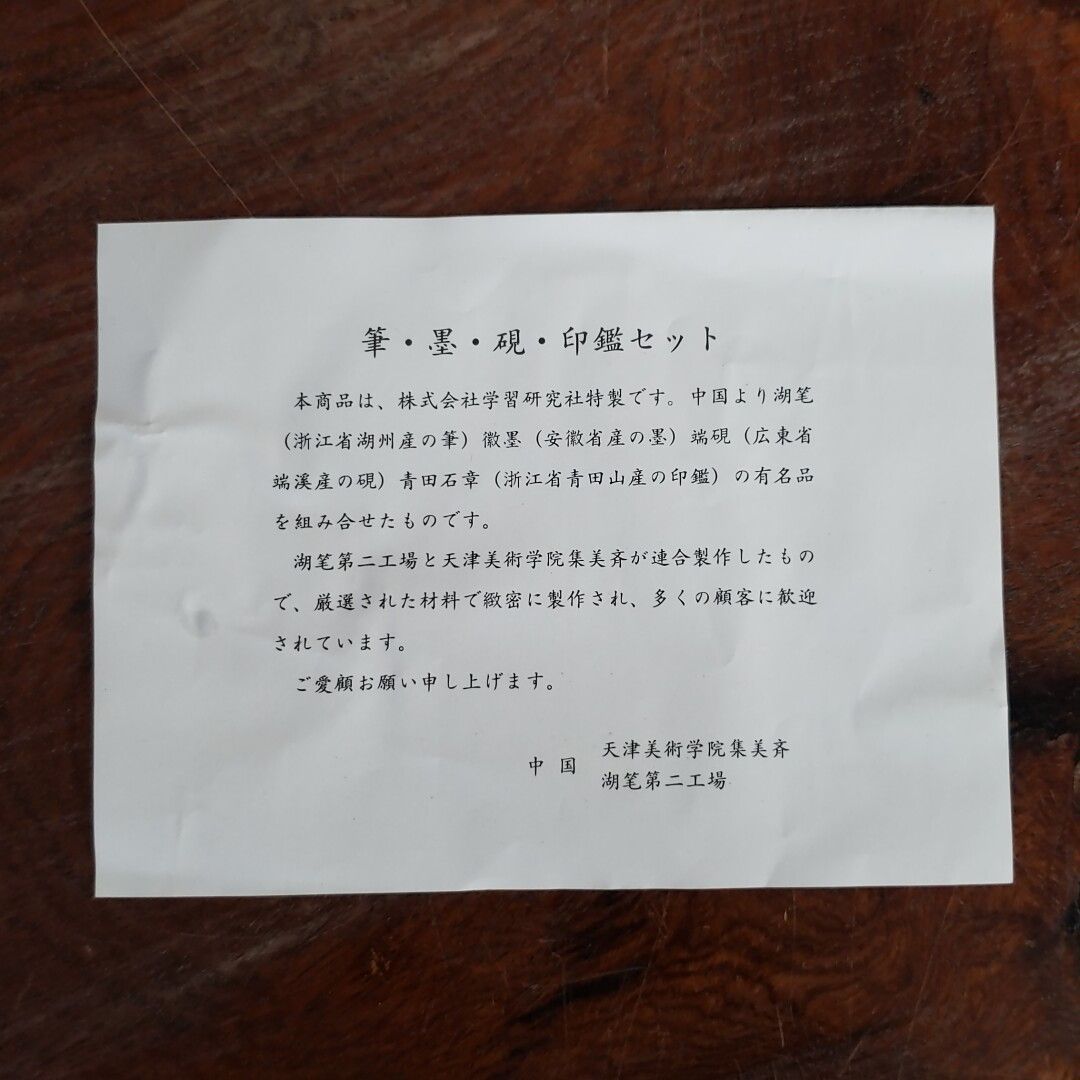 筆・墨・硯・印鑑セット
本商品は、株式会社学習研究社特製です。中国より湖笔
（浙江省湖州産の筆）徽墨（安徽省産の墨）端硯（広東省
端溪産の硯）青田石章（浙江省青田山産の印鑑）の有名品
を組み合せたものです。
湖笔第二工場と天津美術学院集美斉が連合製作したもの
で、厳選された材料で緻密に製作され、多くの顧客に歓迎
されています。
ご愛顧お願い申し上げます。
中国 天津美術学院集美斉
湖笔第二工場